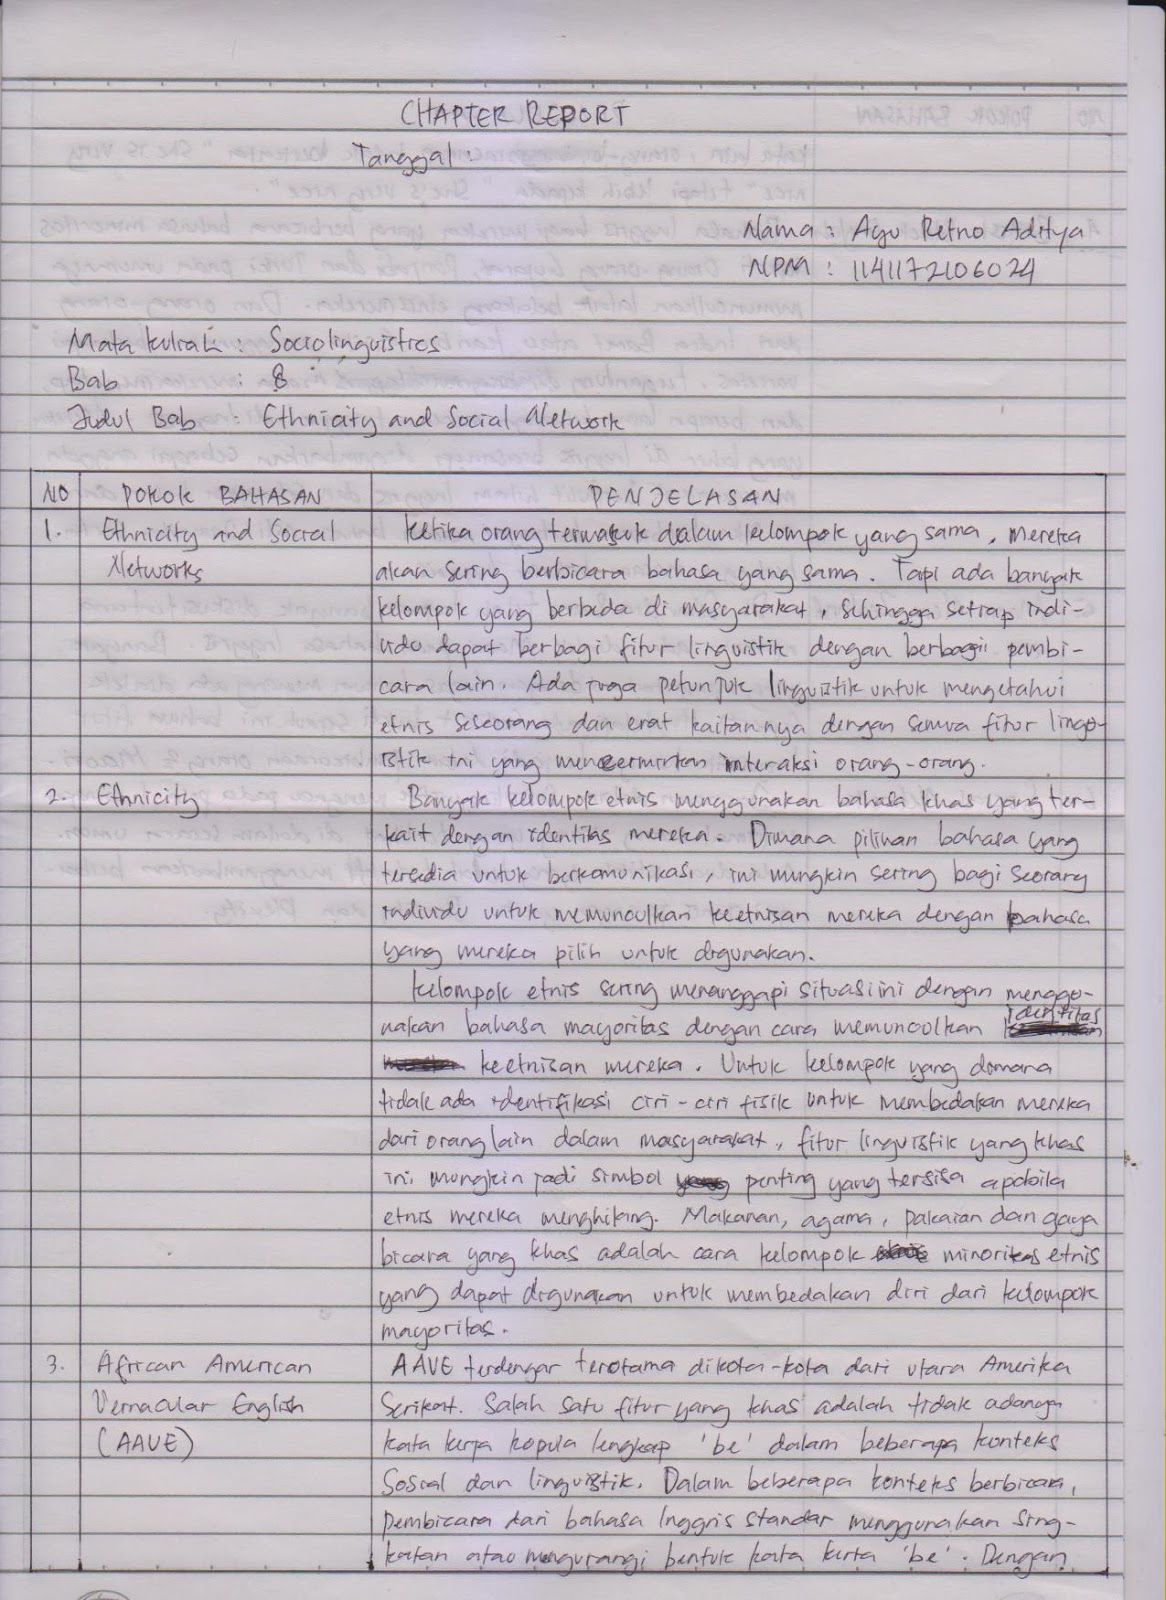 CHAPTER REPORT
Tanggal :
Nama : Ayu Retno Aditya
NPM : 1141172106024
Mata Kuliah : Sociolinguistics
Bab : 8
Judul Bab : Ethnicity and Social Network
NO POKOK BAHASAN PENJELASAN
1. Ethnicity and Social Networks
Ketika orang termasuk dalam kelompok yang sama, mereka
akan sering berbicara bahasa yang sama. Tapi ada banyak
kelompok yang berbeda di masyarakat, sehingga setiap indi-
vidu dapat berbagi fitur linguistik dengan berbagai pembi-
cara lain. Ada juga petunjuk linguistik untuk mengetahui
etnis seseorang dan erat kaitannya dengan semua fitur lingu-
istik ini yang mencerminkan interaksi orang-orang.
2. Ethnicity
Banyak kelompok etnis menggunakan bahasa khas yang ter-
kait dengan identitas mereka. Dimana pilihan bahasa yang
tersedia untuk berkomunikasi, ini mungkin sering bagi seorang
individu untuk memunculkan keetnisan mereka dengan bahasa
yang mereka pilih untuk digunakan.
Kelompok etnis sering menanggapi situasi ini dengan menggu-
nakan bahasa mayoritas dengan cara memunculkan identitas
keetnisan mereka. Untuk kelompok yang dimana
tidak ada identifikasi ciri-ciri fisik untuk membedakan mereka
dari orang lain dalam masyarakat, fitur linguistik yang khas
ini mungkin jadi simbol penting yang tersisa apabila
etnis mereka menghilang. Makanan, agama, pakaian dan gaya
bicara yang khas adalah cara kelompok minoritas etnis
yang dapat digunakan untuk membedakan diri dari kelompok
mayoritas.
3. African American
Vernacular English
(AAVE)
AAVE terdengar terutama dikota-kota dari utara Amerika
Serikat. Salah satu fitur yang khas adalah tidak adanya
kata kerja kopula lengkap 'be' dalam beberapa konteks
Sosial dan linguistik. Dalam beberapa konteks berbicara,
pembicara dari bahasa Inggris standar menggunakan sing-
katan atau mengurangi bentuk kata kerja 'be'. Dengan